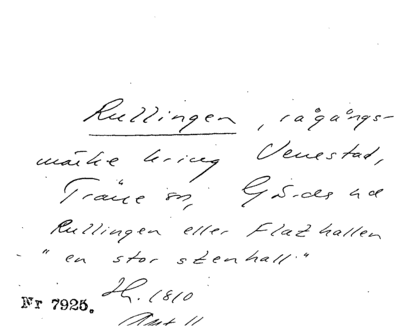 Rullingen, rågångs-
märke kring Venestad,
Träne sn, Gärds hd
Rullingen eller Flathallen
"en stor stenhall."
Hh. 1810
Nr 7925. Akt 11